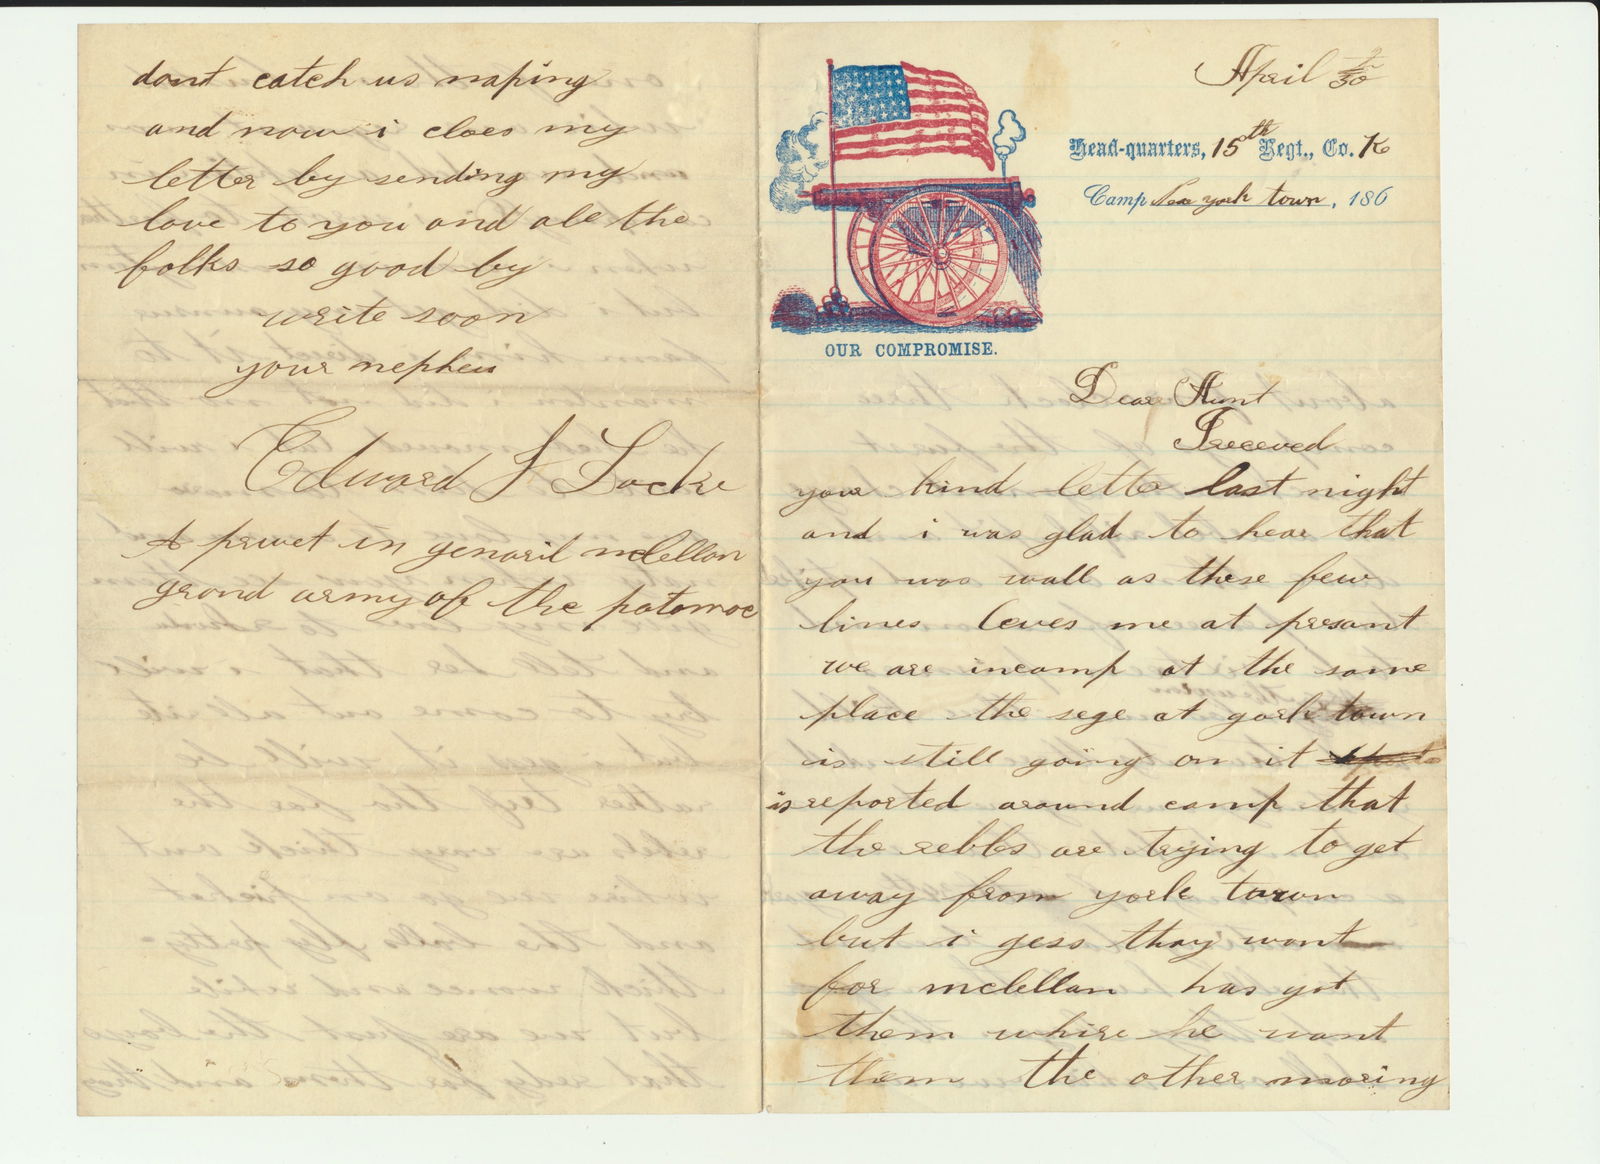 April 30
Head-quarters, 15th Regt., Co. K
Camp near york town, 186
OUR COMPROMISE.
Dear Aunt
I receeved
your kind letter last night
and i was glad to hear that
you was wall as these few
lines leves me at presant
we are incamp at the same
place the sege at york town
is still going on it
is reported around camp that
the rebbs are trying to get
away from york town
but i gess thay wont
for mclellan has got
them whire he want
them the other moring
dont catch us naping
and now i cloes my
letter by sending my
love to you and all the
folks so good by
write soon
your nepheu
Edward J Locke
A privet in genaril mclellan
grand army of the potomac